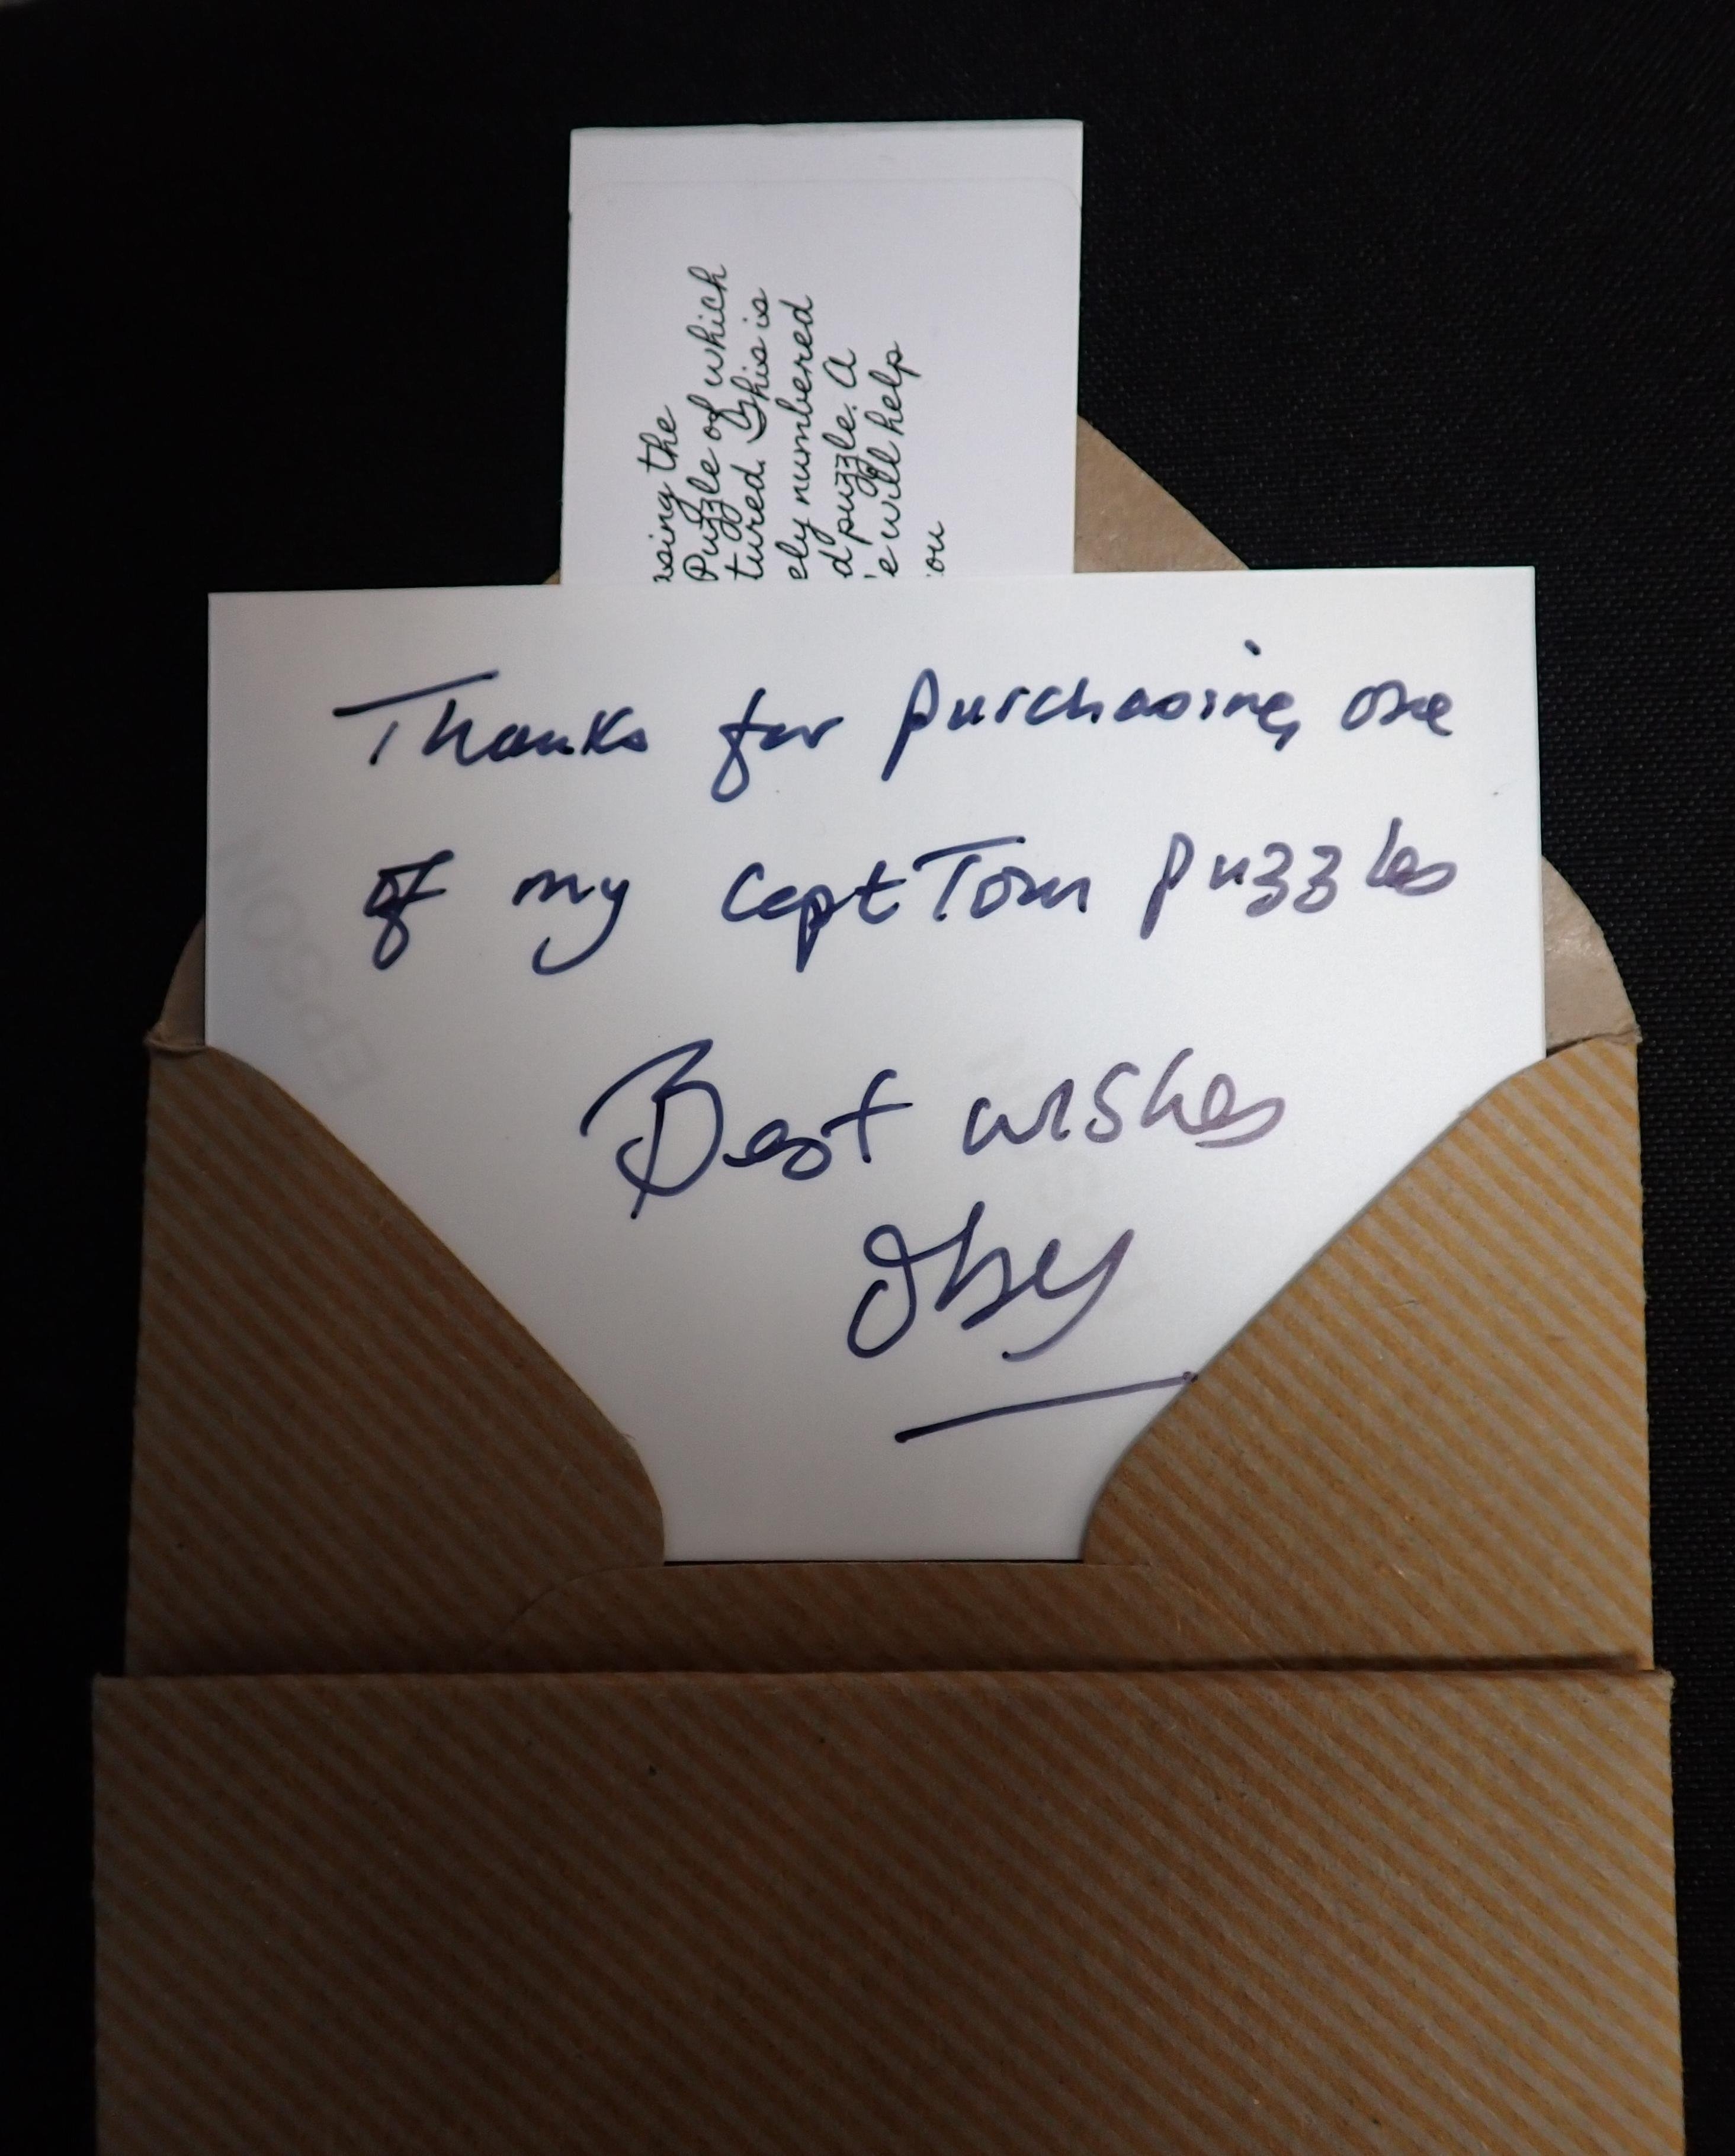 sing the
Puzzle of which
tured. This is
ely numbered
d puzzle. A
e will help
ou
Thanks for purchasing one
of my Capt Tom puzzles
Best wishes